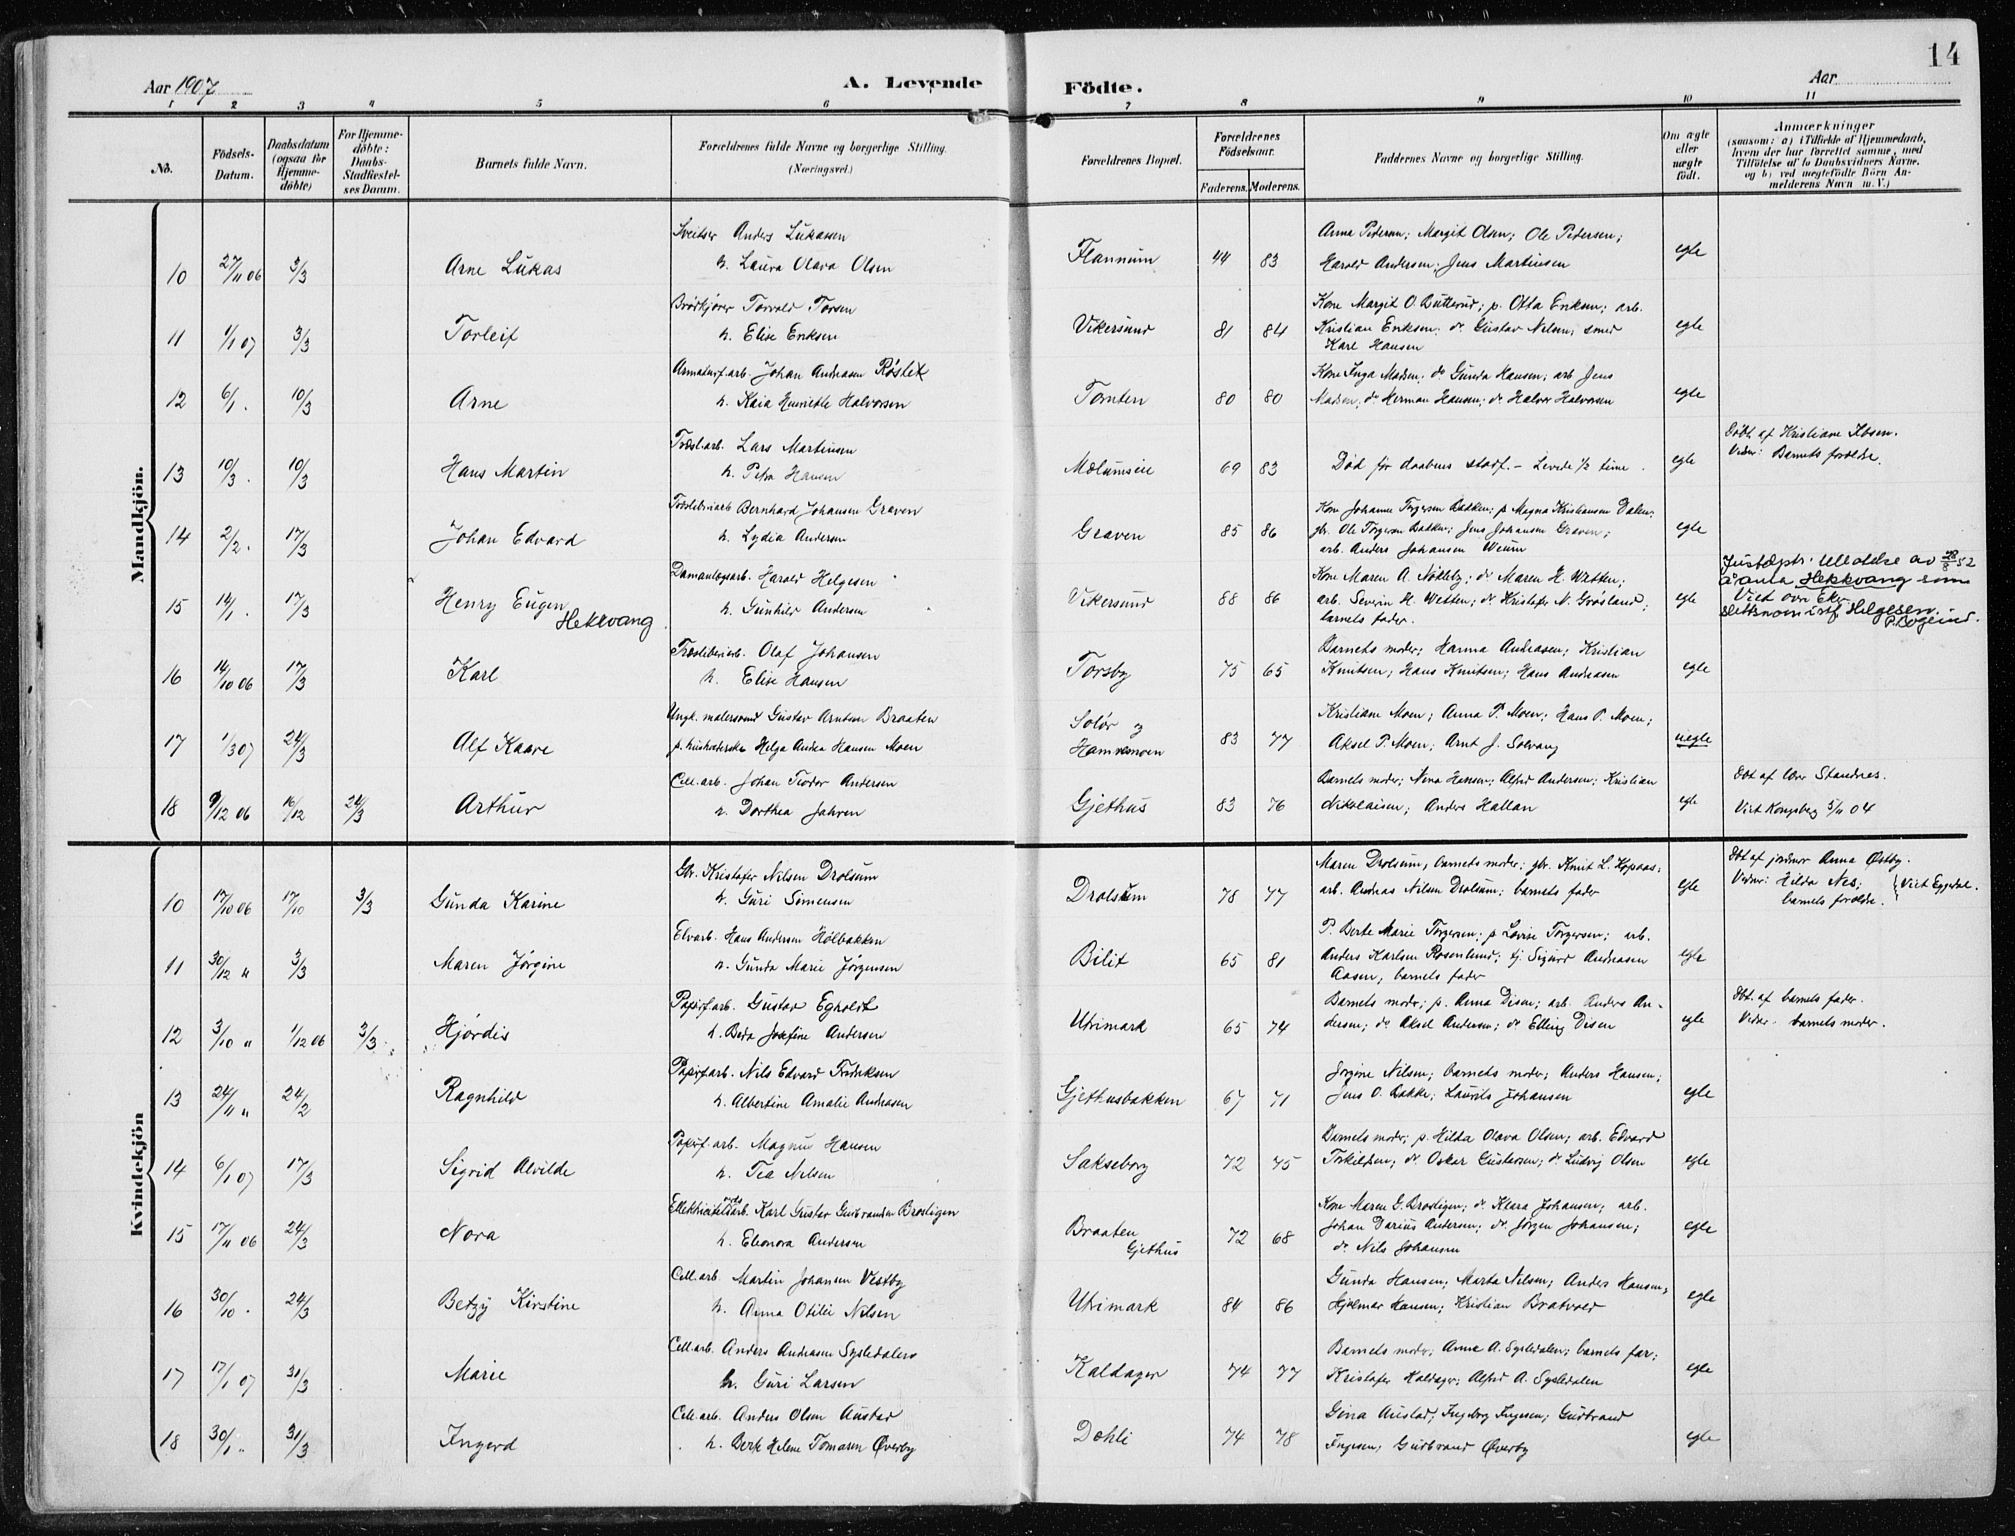 14
Aar 1907
A. Levende
Födte.
Aar
1 2 3 4 5 6 7 8 9 10 11
No.
Födsels-Datum.
Daabsdatum (ogsaa for Hjemme-döbte)
For Hjemme-döbte: Daabs-Stadfæstel-ses Datum.
Barnets fulde Navn.
Forældrenes fulde Navne og borgerlige Stilling. (Næringsvei.)
Forældrenes Bopæl.
Forældrenes Födselsaar.
Faderens. Moderens.
Faddernes Navne og borgerlige Stilling.
Om ægte eller uægte födt.
Anmærkninger
(saasom: a) i Tilfælde af Hjemmedaab, hvem der har forrettet samme, med Tilföielse af to Daabsvidners Navne, og b) ved uægtefödte Börn An-melderens Navn m. V.)
Mandkjön.
Sveitser Anders Lukassen
Anna Pedersen; Margit Olsen; Ole Pedersen;
10 27/11 06 3/3 Arne Lukas h. Laura Olava Olsen Flannum 44 83 Harald Andersen; Jens Martinsen egte
Brødkjører Torvald Torsen
Kone Margit O. Butterud; p. Otta Eriksen; arb.
11 1/1 07 3/3 Torleif h. Elise Eriksen Vikersund 81 84 Kristian Eriksen; do Gustav Nilsen; smed egte
Karl Hansen
Armaturf.arb. Johan Andreasen Røslet
Kone Inga Madsen; do Gunda Hansen; arb Jens
12 6/1 . 10/3 Arne h. Kaia Henriette Halvorsen Tomten 80 80 Madsen; do Herman Hansen; do Halvor Halvorsen egte
Træsl.arb. Lars Martinsen
Døbt af Kristiane Ibsen.
13 10/3 . 10/3 Hans Martin h. Petra Hansen Mælumseie 69 83 Død før daabens stadf. – Levede 1/2 time. egte Vidner: Barnets forældre.
Træsliberiarb Bernhard Johansen Graven
Kone Johanne Torgersen Bakken; p Magna Kristiansen Dalen;
14 2/2 . 17/3 Johan Edvard h. Lydia Andersen Graven 85 86 gbr. Ole Torgersen Bakken; Jens Johansen Graven; egte
arb. Anders Johansen Weum
Damanlægsarb. Harald Helgesen
Kone Maren A. Nøkleby; do Maren H. Wetten;
Justisdepts. tillatelse av 28/8 52
å anta Hekkvang som
15 14/1 . 17/3 Henry Eugen Hekkvang h. Gunhild Andersen Vikersund 88 86 arb. Severin H. Wetten; do Kristofer N. Grøsland; egte
barnets fader.
slektsnavn istf. Helgesen.
Træsliberiarb. Olaf Johansen
Barnets moder; Hanna Andreasen; Kristian
16 14/10 06 17/3 Karl h. Elise Hansen Torsby 75 65 Knutsen; Hans Knutsen; Hans Andreasen egte
Ungk. malersvend Gustav Arntsen Braaten
Solør og
Kristiane Moen; Anna P. Moen; Hans P. Moen;
17 1/3 07 24/3 Alf Kaare p. Helga Andrea Hansen Moen Hamremoen 83 77 Aksel P. Moen; Arnt J. Solvang uegte
Cell. arb. Johan Teodor Andersen
Barnets moder; Nina Hansen; Alfred Andersen; Kristian
18 9/12 06 16/12 24/3 Arthur h. Dorthea Jahren Gjethus 83 76 Nikolaisen; Anders Hallan egte
Viet Kongsberg 5/11 04
Kvindekjön
Gbr. Kristofer Nilsen Drolsum
Maren Drolsum; barnets moder; gbr. Knut L. Hopaas;
Dbt. af jordmor Anna Østby.
10 17/10 06 17/10 3/3 Gunda Karine h. Guri Simensen Drolsum 78 77 arb. Andreas Nilsen Drolsum; barnets fader egte Vidner: Hilda Nes; barnets forældre. Viet Eggedal.
Elvarb. Hans Andersen Hølbakken
P. Berte Marie Torgersen; p Lovise Torgersen; arb.
11 30/12 " 3/3 Maren Jørgine h. Gunda Marie Jørgensen Bilit 65 81 Anders Karlsen Rosenlund; tj. Sigurd Andreasen egte
Aasen; barnets fader
Papirf.arb. Gustav Egholdt
Barnets moder; p. Anna Disen; arb. Anders An-
Dbt. af barnets fader.
12 3/10 " 1/12 06 3/3 Hjørdis h. Beda Josefine Andersen Utrimark 65 74 dersen; do Aksel Andersen; do Elling Disen egte Vidner. barnets moder.
Papirf.arb. Nils Edvard Fredriksen
Jørgine Nilsen; barnets moder; Anders Hansen;
13 24/11 " 24/2 Ragnhild h. Albertine Amalie Andreasen Gjethusbakken 67 71 Jens O. Bakke; Laurits Johansen egte
Papirf.arb. Magnus Hansen
Barnets moder; p. Hilda Olava Olsen; arb. Edvard
14 6/1 07 17/3 Sigrid Alvilde h. Tea Nilsen Sakseborg 72 75 Torkildsen; do Oskar Gustavsen; do Ludvig Olsen egte
Karl Gustav Gudbrandsen Brostigen
Kone Maren G. Brostigen; do Klara Johansen; arb.
15 17/11 06 24/3 Nora h. Eleonora Andersen Braaten Gjethus 72 68 Johan Darius Andersen; do Jørgen Johansen; egte
do Nils Johansen
Cell.arb. Martin Johansen Vestby
Gunda Hansen; Marta Nilsen; Anders Hansen;
16 30/10 . 24/3 Betzy Kirstine h. Anna Otilie Nilsen Utrimark 84 86 Hjalmar Hansen; Kristian Bratvold egte
Cell.arb. Anders Andreasen Sysledalen
Barnets moder; Anna A. Sysledalen; barnets far;
17 17/1 07 31/3 Marie h. Guri Larsen Kaldager 74 77 Kristofer Kaldager; Alfred A. Sysledalen egte
Cell.arb. Anders Olsen Austad
Gina Austad; Ingeborg Ingesen; Gudbrand
18 30/1 " 31/3 Ingerd h. Berte Helene Tomasen Øverby Døhli 74 78 Ingesen; Gudbrand Øverby egte